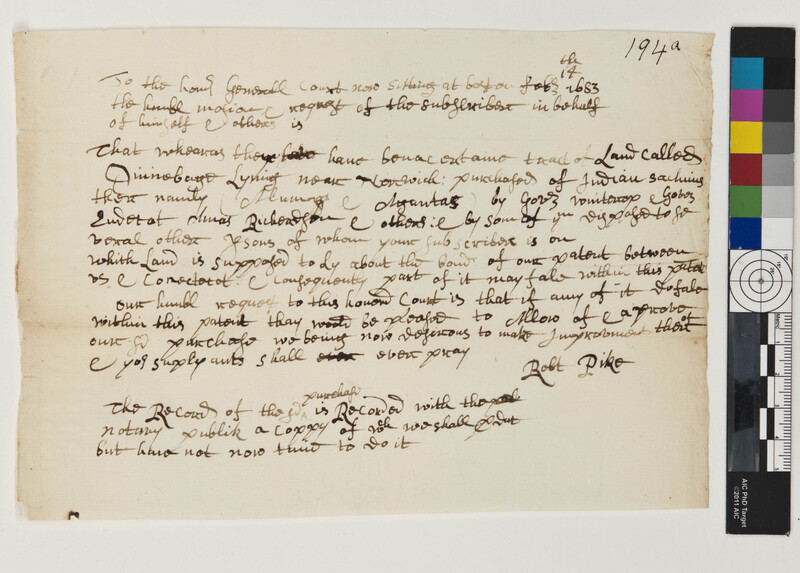 194a
To the hond Generall Court now sitting at boston feb: 14th 1683
the humbl motion & request of the subscriber in behalf
of himself & others is
That wheareas ther have ben a certaine tract of Land called
Quinebage Lyying near Norwich: purchased of Indian sachims
ther namly (Allumps & Aguntas) by Gover Winterop & Gover
Endecot Amos Richerdson & others: & by som of ym disposed to se
verall other psons of whom your subscriber is on
which Land is supposed to ly about the bounds of our patent between
us & Conecticot: & Consequently part of it may fale within this patat
our humbl request to this honord Court is that if any of it do fale
within this patent thay would be pleased to Allow of & aprove
our sd purchase we being now desirous to make Improvement therof
& yor supplyants shall ever pray
Robt Pike
The Record of the sd purchase is Recorded with the
notary publik a Coppy of wch we shall pduc
but have not now time to do it
AIC PhD Target
©2011 AIC